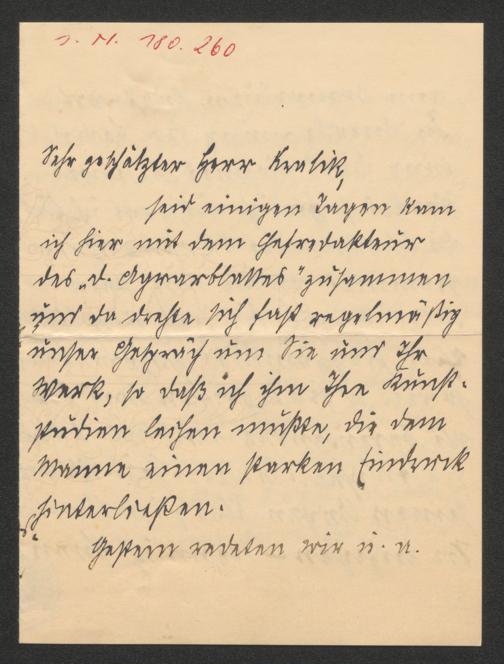 J. N. 180.260
Sehr geschätzter Herr Kralik,
seid einigen Tagen kam
ich hier mit dem Chefredakteur
des „d. Agrarblattes" zusammen
und da drehte sich fast regelmäßig
unser Gespräch um Sie und Ihr
Werk, so daß ich ihm Ihre Kunst-
studien leihen mußte, die dem
Manne einen starken Eindruck
hinterließen.
Gestern redeten wir u. a.